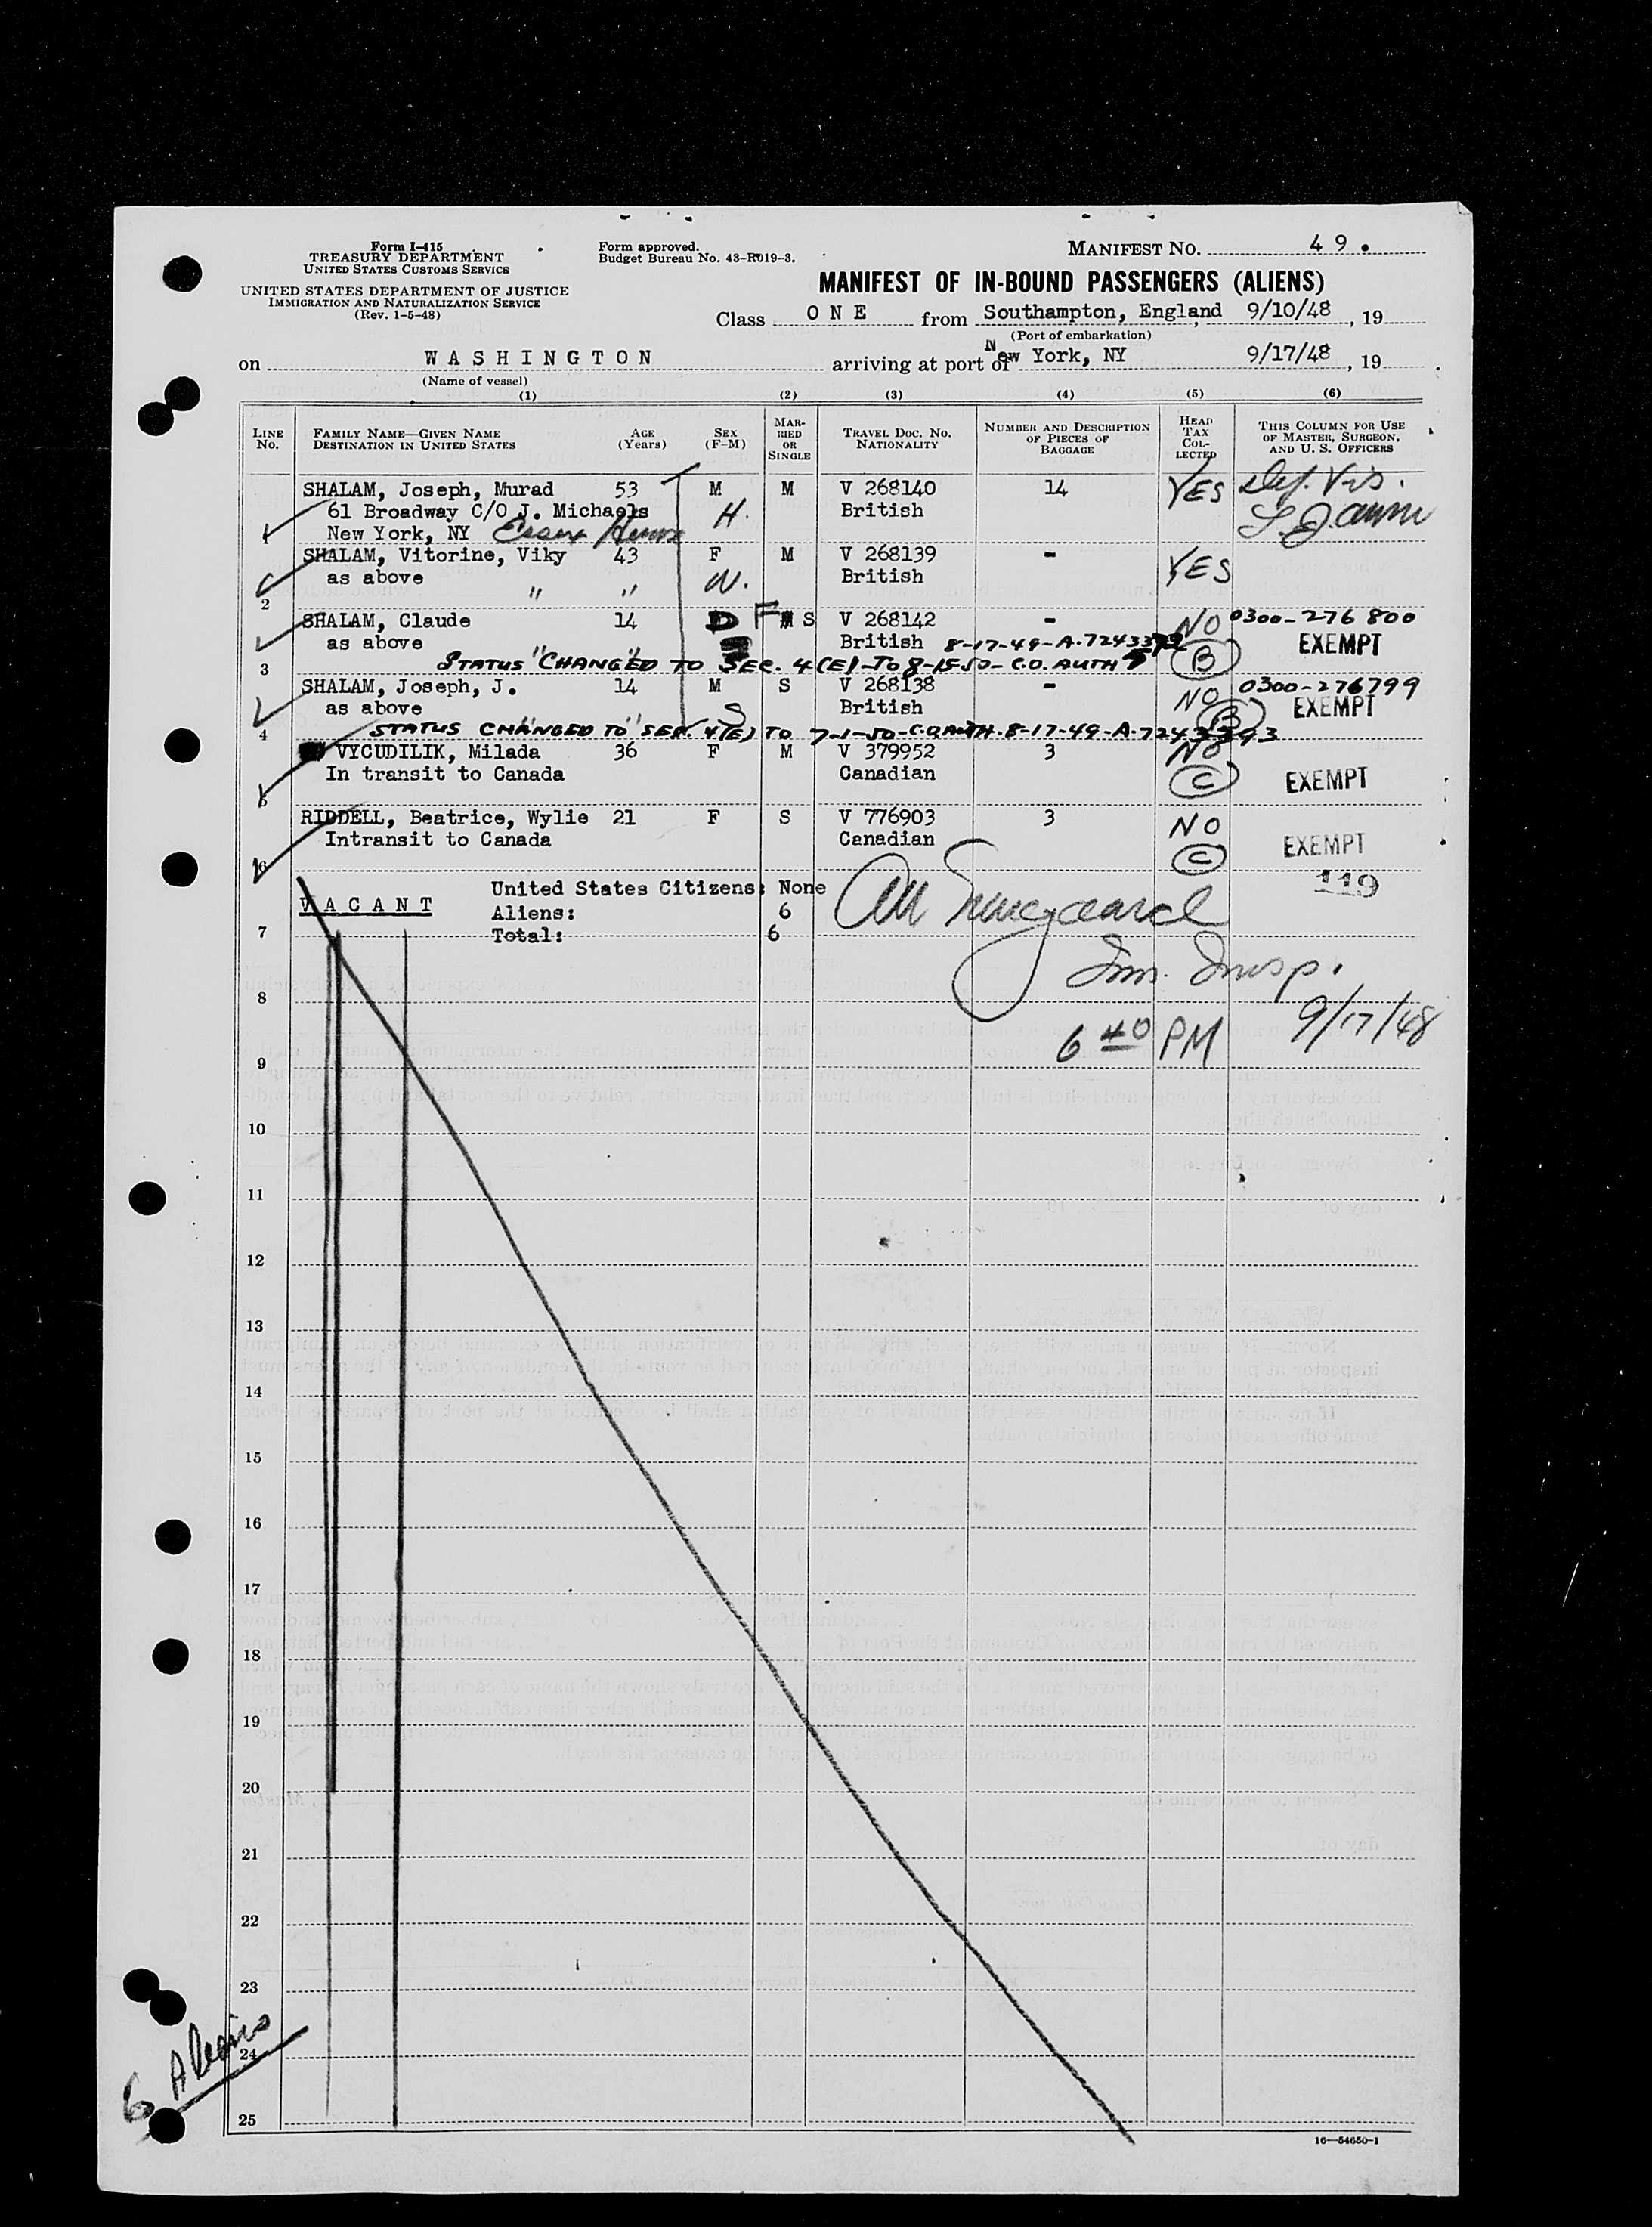 Form I-415
TREASURY DEPARTMENT
UNITED STATES CUSTOMS SERVICE
UNITED STATES DEPARTMENT OF JUSTICE
IMMIGRATION AND NATURALIZATION SERVICE
(Rev. 1-5-48)
Form approved.
Budget Bureau No. 43-R019-3.
MANIFEST NO. 49.
MANIFEST OF IN-BOUND PASSENGERS (ALIENS)
Class ONE from Southampton, England, 9/10/48, 19
(Port of embarkation)
on WASHINGTON arriving at port of New York, NY 9/17/48, 19
(Name of vessel)
(1) (2) (3) (4) (5) (6)
LINE No. FAMILY NAME—GIVEN NAME DESTINATION IN UNITED STATES AGE (Years) SEX (F-M) MARRIED OR SINGLE TRAVEL DOC. NO. NATIONALITY NUMBER AND DESCRIPTION OF PIECES OF BAGGAGE HEAD TAX COLLECTED THIS COLUMN FOR USE OF MASTER, SURGEON, AND U. S. OFFICERS
SHALAM, Joseph, Murad 53 M M V 268140 14 YES
61 Broadway C/O J. Michaels H. British
1 New York, NY Essex House
SHALAM, Vitorine, Viky 43 F M V 268139 - YES
as above W. British
2 " "
SHALAM, Claude 14 F S V 268142 - NO 0300-276800
as above " " British 8-17-49-A-7243392 B EXEMPT
3 STATUS CHANGED TO SEC. 4(E)-TO 8-15-50-C.O. AUTH
SHALAM, Joseph, J. 14 M S V 268138 - NO 0300-276799
as above " " S British B EXEMPT
4 STATUS CHANGED TO SEC. 4(E) TO 7-1-50-C.O. AUTH. 8-17-49-A-7243393
VYCUDILIK, Milada 36 F M V 379952 3 NO
In transit to Canada Canadian C EXEMPT
5
RIDDELL, Beatrice, Wylie 21 F S V 776903 3 NO
Intransit to Canada Canadian C EXEMPT
6
119
United States Citizens: None
VACANT Aliens: 6
7 Total: 6
Imm. Insp.
8
9/17/48
6 40 PM
9
10
11
12
13
14
15
16
17
18
19
20
21
22
23
24
25
6 Aliens
16—54650-1